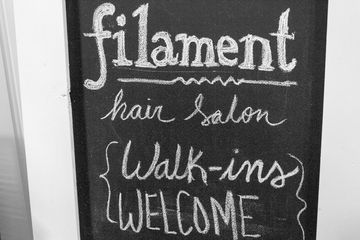 filament
hair Salon
Walk-ins
WELCOME